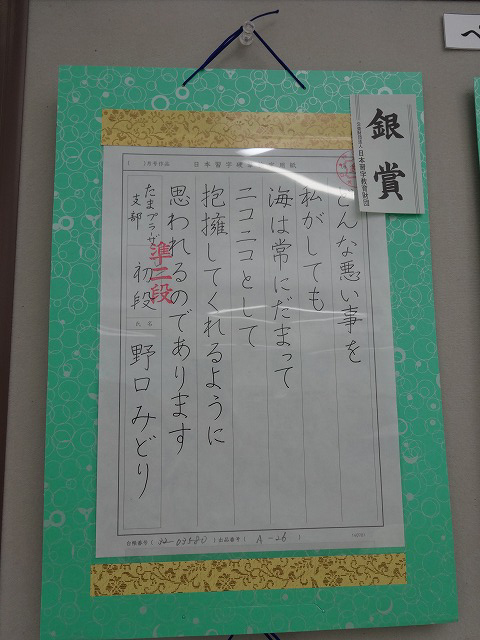 銀賞
公益財団法人日本習字教育財団
どんな悪い事を
私がしても
海は常にだまって
ニコニコとして
抱擁してくれるように
思われるのであります
たまプラーザ
支部
初段
準二段
氏名
野口みどり
( )月号作品
会員番号( 32-03580 )出品番号( A-26 )